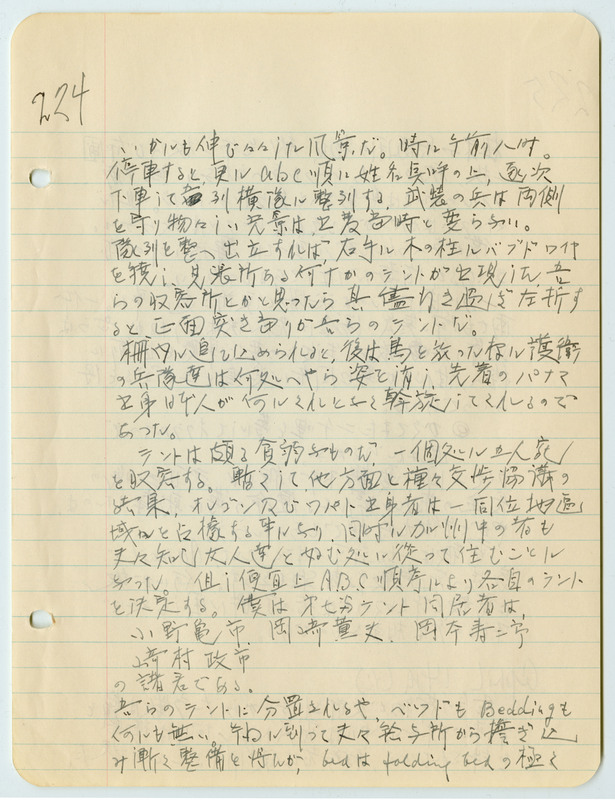 224
いかにも伸び々々した風景だ。時に午前八時。
停車すると、更に abc 順に姓名点呼の上、逐次
下車して 列横隊に整列する。武装の兵は両側
を守り物々しい光景は出発当時と変らない。
隊列を整へ出立すれば、右手に木の柱にバブドワイヤ
を繞し、見張所ある何十かのテントが出現した、吾
らの収容所とかと思ったら其儘行き過ぎ左折す
ると正面突き当りが吾らのテントだ。
柵内に追い込められると、後は馬を放った様に護衛
の兵隊連は何処へやら姿を消し、先着のパナマ
出身日本人が何にくれとなく斡旋してくれるので
あった。
テントは頗る貧弱なもので、一個処に五人宛
を収容する。暫くして他方面と種々交渉協議の
結果、オレゴン及びワシント出身者は一同位地区
域内を占據する事になり、同時に加州中の者も
夫々知己友人達と好む処に従って住むことに
なった。但し便宜上ABC順序により各自のテント
を決定する。僕は第七号テント同居者は、
小野亀市、岡崎薫夫、岡本寿三郎
崎村政市
の諸君である。
吾らのテントに分置されるや、ベッドも Beddingも
何にも無い。午ねに到って夫々給与所から担ぎ込
み漸く整備を得んが、bedは folding bedの極く